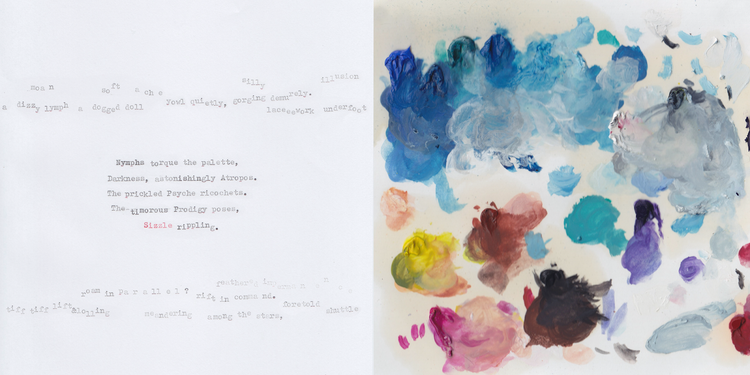 soon soft ache silly illusion
a dizzy lymph a dogged doll Yowl quietly, gorging demurely. lacework underfoot
Nymphs torque the palette,
Darkness, astonishingly Atropos.
The prickled Psyche ricochets.
The timorous Prodigy poses,
Sizzle rippling.
room in Parallel? rift in command. feathers
tiff tiff lift meandering among the stars, foretold shuttle